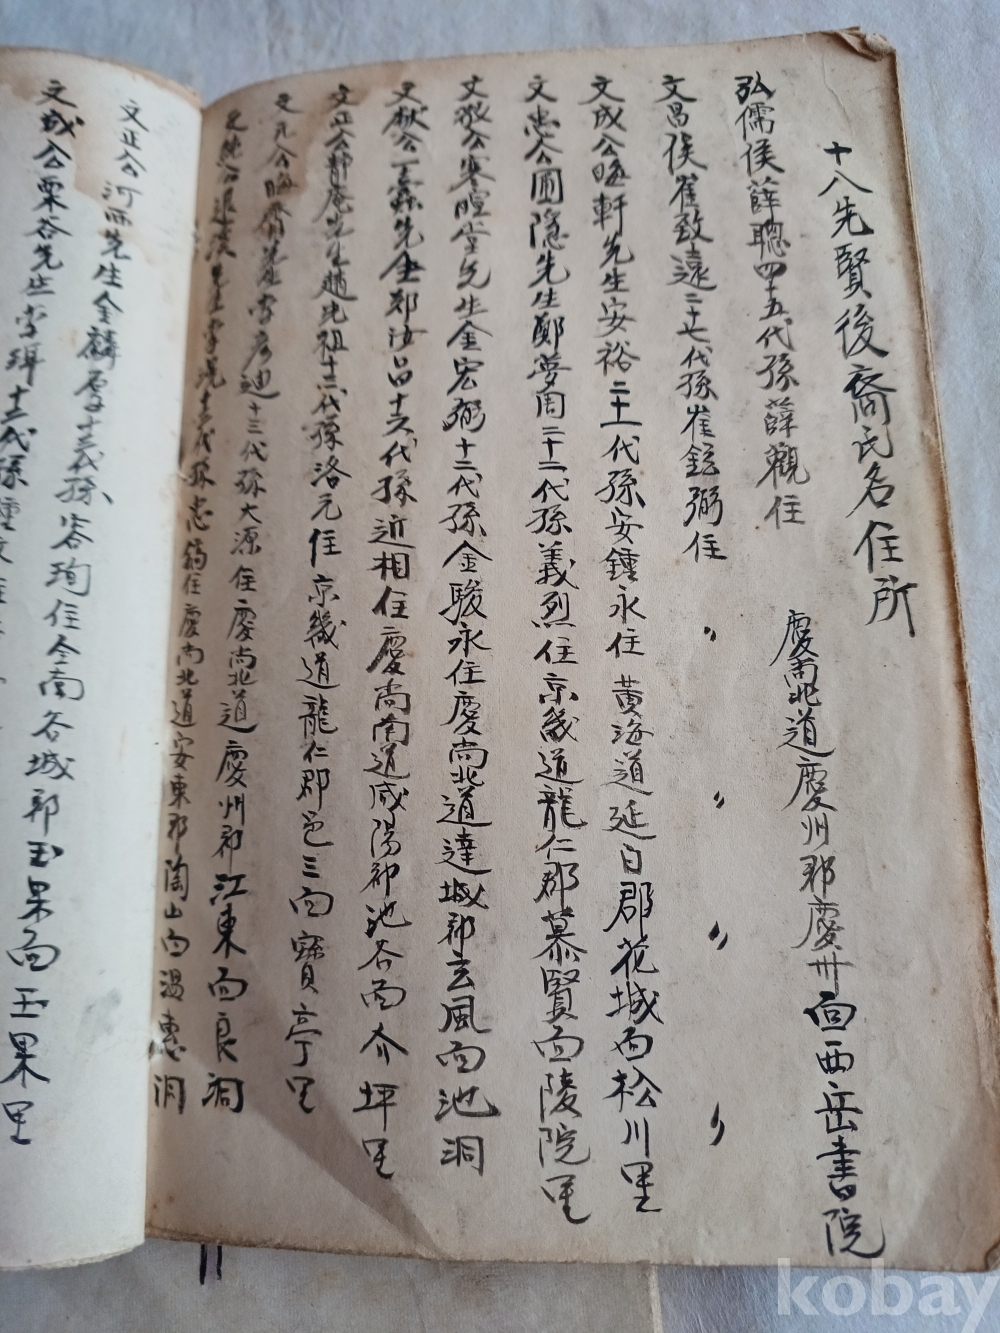 十八先賢後裔氏名住所
弘儒侯薛聰四十五代孫薛觀住 慶尚北道慶州郡慶州面西岳書院
文昌侯崔致遠二十七代孫崔鉉弼住 〃 〃 〃 〃
文成公晦軒先生安裕二十一代孫安鍾永住黃海道延白郡花城面松川里
文忠公圃隱先生鄭夢周二十二代孫義烈住京畿道龍仁郡慕賢面陵院里
文敬公寒暄堂先生金宏弼十二代孫金駿永住慶尚北道達城郡玄風面池洞
文献公一蠹先生鄭汝昌十六代孫近相住慶尚南道咸陽郡池谷面介坪里
文正公靜庵先生趙光祖十三代孫洛元住京畿道龍仁郡邑三面寶亭里
文元公晦齋先生李彦迪十三代孫大源住慶尚北道慶州郡江東面良洞
文純公退溪先生李滉十三代孫忠鎬住慶尚北道安東郡陶山面溫惠洞
文正公河西先生金麟厚十三代孫容珣住全南谷城郡玉果面玉果里
文成公栗谷先生李珥十三代孫種文住
kobay